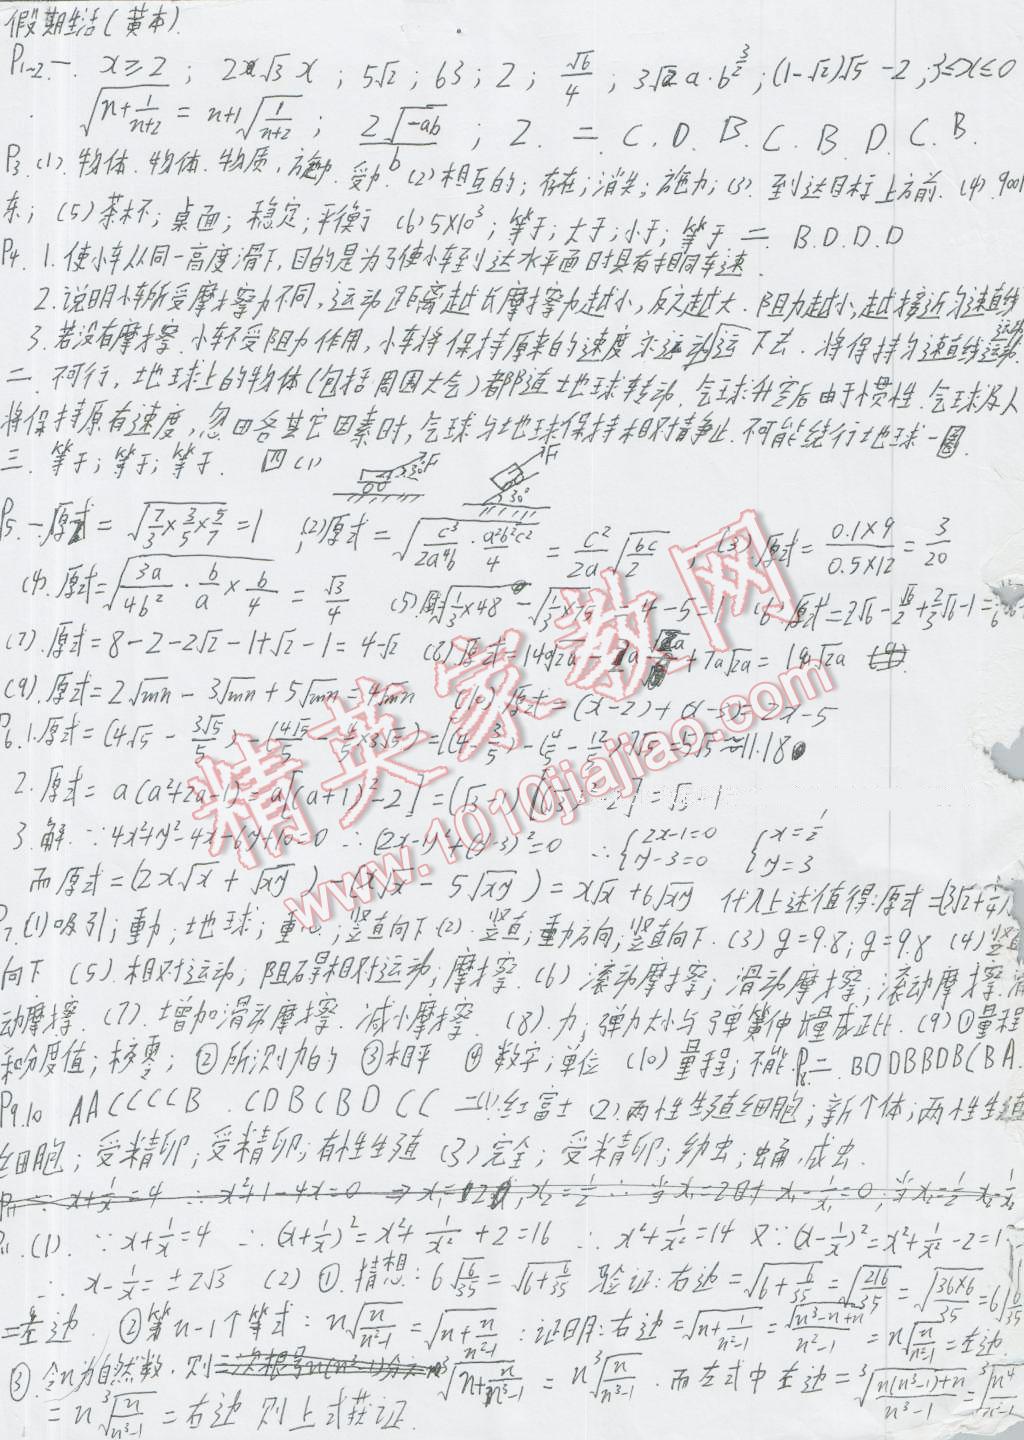 假期生活(黄本).
P1~2. 一. x≥2 ; 2√3 x ; 5√2 ; 63 ; 2 ; √6/4 ; 3√2 a·b^(3/2) ; (1-√2)√5 -2 ; 3≤x≤0
√(n+1/(n+2)) = n+1√(1/(n+2)) ; 2√(-ab)/b ; 2. 二 C.D.B.C.B.D.C.B.
P3. (1). 物体. 物体. 物质. 施力. 受力. (2) 相互的; 存在; 消失; 施力; (3). 到达目标上方前. (4). 900N
东; (5) 茶杯; 桌面; 稳定; 平衡于 (6) 5×10³; 等于; 大于; 小于; 等于 二 B.D.D.D
P4. 1. 使小车从同一高度滑下, 目的是为了使小车到达水平面时具有相同车速.
2. 说明小车所受摩擦力不同, 运动距离越长摩擦力越小, 反之越大. 阻力越小, 越接近匀速直线
3. 若没有摩擦. 小车不受阻力作用, 小车将保持原来的速度永远运动下去. 将保持匀速直线运动.
二. 不可行, 地球上的物体(包括周围大气)都随地球转动. 气球升空后由于惯性. 气球及人
将保持原有速度, 忽略各其它因素时, 气球与地球保持相对静止. 不可能绕行地球一圈.
三. 等于; 等于; 等于. 四(1) 30° 30°
P5. 一. 原式 = √(7/3×3/5×5/7) = 1 (2) 原式 = √(c³/2a⁴b · a²b²c²/4) = c²/2a √(bc/2) ; (3). 原式 = 0.1×9/0.5×12 = 3/20
(4). 原式 = √(3a/4b² · b/a × b/4) = √3/4 (5). 原式 √(1/3×48) - = 4-5=1 (6. 原式=2√6-√6/2+2/3√6-1=
(7). 原式=8-2-2√2-1+√2-1=4-√2 (8) 原式=14a√2a - + 7a√2a = 19a√2a
(9). 原式=2√mn - 3√mn + 5√mn = 4√mn (10). 原式=(x-2)+(x-3)=2x-5
P6. 1. 原式=(4√5 - 3√5/5) - (4√5/5 - 4/5×3√5) = [(4-3/5)-(4/5-12/5)]√5=5√5≈11.18
2. 原式= a(a²+2a-1)=a[(a+1)²-2]=(√3-1)[(√3)²-2]=√3-1
3. 解: ∵4x²+y²-4x-6y+10=0 ∴(2x-1)²+(y-3)²=0 ∴{2x-1=0 y-3=0 {x=1/2 y=3
而原式=(2x√x+√xy)-(x√x-5√xy)=x√x+6√xy 代入上述值得:原式=(3√2+1/4)
P7. (1) 吸引; 重力; 地球; 重心; 竖直向下 (2). 竖直; 重力方向; 竖直向下. (3) g=9.8; g=9.8 (4) 竖直
向下 (5). 相对运动; 阻碍相对运动; 摩擦. (6) 滚动摩擦; 滑动摩擦; 滚动摩擦. 滑
动摩擦. (7). 增加滑动摩擦. 减小摩擦. (8). 力; 弹力大小与弹簧伸长量成正比. (9) ①量程
和分度值; 校零; ②所测力的 ③相平 ④数字; 单位 (10) 量程; 不能. P8 二. BDDBBDB(BA.
P9.10 AACCCCB . CDBCBDCC 二(1). 红富士 (2). 两性生殖细胞; 新个体; 两性生殖
细胞; 受精卵; 受精卵; 有性生殖 (3) 完全; 受精卵; 幼虫; 蛹. 成虫.
P11 ∵ x+1/x=4 ∴ x²+1-4x=0 ⇒ x₁=2, x₂=1/2 ∴ 当x₁=2时 x₁-1/x₁=0; 当x₂=1/2 x₂-1/x₂
P11. (1). ∵ x+1/x=4 ∴ (x+1/x)²=x²+1/x²+2=16 ∴ x²+1/x²=14 又∵(x-1/x)²=x²+1/x²-2=1
∴ x-1/x=±2√3 (2) ①. 猜想: 6√(6/35)=√(6+6/35) 验证:右边=√(6+6/35)=√(216/35)=√(36×6/35)=6√(6/35)
=左边. ②第n-1个等式: n√(n/(n²-1))=√(n+n/(n²-1)) : 证明:右边=√(n+1/(n²-1))=√(n³-n+n)/(n²-1)=n√(n/(n²-1))=左边.
③. 令n为自然数. 则三次根号n(n³-1)分之n ³√(n+n/(n³-1)) = n³√(n/(n³-1)). 而左式中左边=³√((n(n³-1)+n)/(n³-1))=³√(n⁴/(n³-1))
= n³√(n/(n³-1)) = 右边 则上式获证.
精英家教网
www.1010jiajiao.com